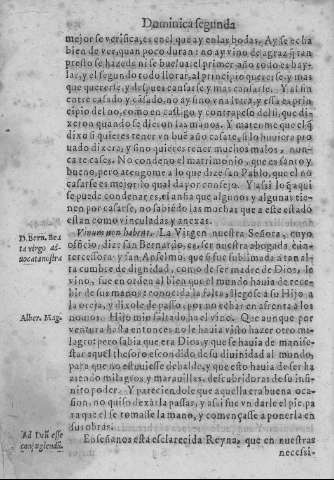 Dominica segunda
mejor se verifica, es en el que ay en las bodas. Ay se echa
bien de ver, quan poco duran: no ay vino de agraz q̃ tan
presto se haze de ni se buelue, el primer año todo es bay-
lar, y el segundo todo llorar, al principio quererse, y mas
que quererse, y despues cansarse y mas cansarse. Y al fin
entre casado y cāsado, no ay sino vna letra, y essa es prin
cipio del no, como en castigo y contrapeso del si, que di-
xeron quando se dieron las manos. Y mateme que el q̃
dixo si quieres tener vn buē año casate, si lo huuiera pro
uado dixera, y sino quieres tener muchos malos, nun-
ca te cases. No condeno el matrimonio, que es santo y
bueno, pero atengome a lo que dize san Pablo, que el no
casarse es mejor lo qual da por consejo. Y assi lo q̃ aqui
se puede condenar es, el anha que algunos y algunas tie-
nen por casarse, no sabiēdo las mochas que a este estado
estan como vinculadas y anexas.
D. Bern. Bea
ta virgo ad-
uocata nostra
Vinum non habent. La Virgen nuestra Señora, cuyo
oficio, dize san Bernardo, es, ser nuestra abogada e in-
tercessora: y san Anselmo, que si fue sublimada a tan al-
ta cumbre de dignidad, como de ser madre de Dios, le
vino, fue en orden al bien que el mundo hauia de rece-
bir de sus manos: conocida la falta, allegose a su Hijo a
la oreja, y dixole de passo, por no echar en afrenta a los
Alber. Mag.
nouios. Hijo mio faltado ha el vino. Que aunque por
ventura hasta entonces no le hauia visto hazer otro mi-
lagro: pero sabia que era Dios, y que se hauia de manife-
star aquel thesoro escondido de su diuinidad al mundo,
para que no estuuiesse debalde, y que esto hauia de ser ha
ziendo milagros y marauillas, descubridoras de su infi-
nito poder. Y pareciendole que aquella era buena oca-
sion, no quiso dexarla passar, y assi fue vn darle el pie, pa
ra que el se tomasse la mano, y començasse a ponerla en
sus obras.
Ad Dei esse
confugiendū.
Enseñanos esta esclarecida Reyna, que en nuestras
necessi-